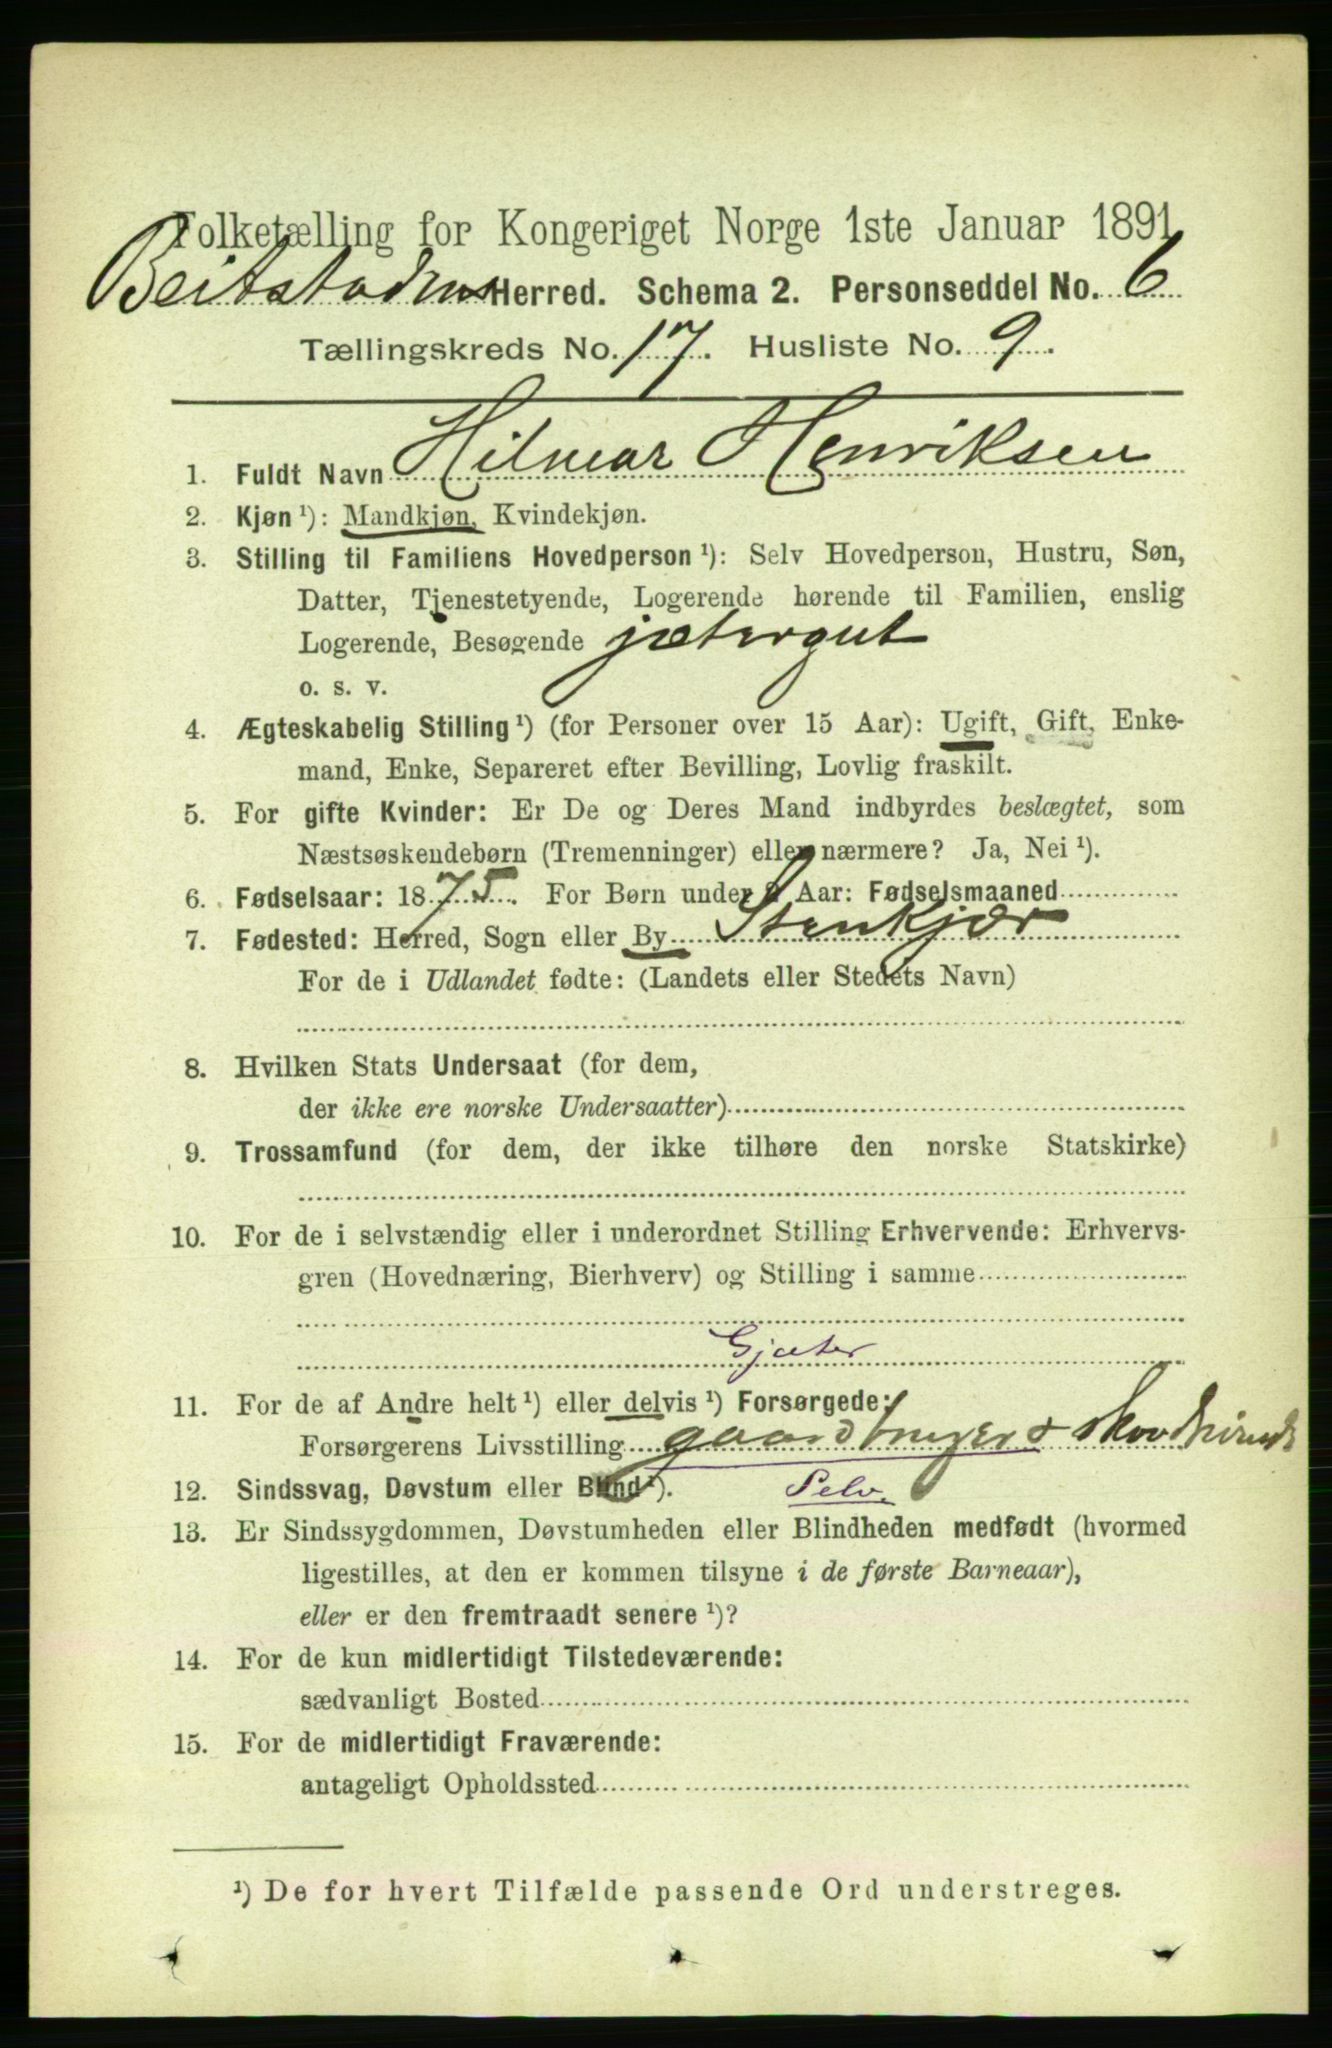 Folketælling for Kongeriget Norge 1ste Januar 1891
Beitstadens Herred. Schema 2. Personseddel No. 6
Tællingskreds No. 17. Husliste No. 9.
1. Fuldt Navn Hilmar Henriksen
2. Kjøn ¹): Mandkjøn, Kvindekjøn.
3. Stilling til Familiens Hovedperson ¹): Selv Hovedperson, Hustru, Søn,
Datter, Tjenestetyende, Logerende hørende til Familien, enslig
Logerende, Besøgende jætergut
o. s. v.
4. Ægteskabelig Stilling ¹) (for Personer over 15 Aar): Ugift, Gift, Enke-
mand, Enke, Separeret efter Bevilling, Lovlig fraskilt.
5. For gifte Kvinder: Er De og Deres Mand indbyrdes beslægtet, som
Næstsøskendebørn (Tremenninger) eller nærmere? Ja, Nei ¹).
6. Fødselsaar: 1875. For Børn under 2 Aar: Fødselsmaaned
7. Fødested: Herred, Sogn eller By Stenkjær
For de i Udlandet fødte: (Landets eller Stedets Navn)
8. Hvilken Stats Undersaat (for dem,
der ikke ere norske Undersaatter)
9. Trossamfund (for dem, der ikke tilhøre den norske Statskirke)
10. For de i selvstændig eller i underordnet Stilling Erhvervende: Erhvervs-
gren (Hovednæring, Bierhverv) og Stilling i samme
Gjæter
11. For de af Andre helt ¹) eller delvis ¹) Forsørgede:
Forsørgerens Livsstilling gaardbruger &
12. Sindssvag, Døvstum eller Blind ¹). Selv.
13. Er Sindssygdommen, Døvstumheden eller Blindheden medfødt (hvormed
ligestilles, at den er kommen tilsyne i de første Barneaar),
eller er den fremtraadt senere ¹)?
14. For de kun midlertidigt Tilstedeværende:
sædvanligt Bosted
15. For de midlertidigt Fraværende:
antageligt Opholdssted
¹) De for hvert Tilfælde passende Ord understreges.